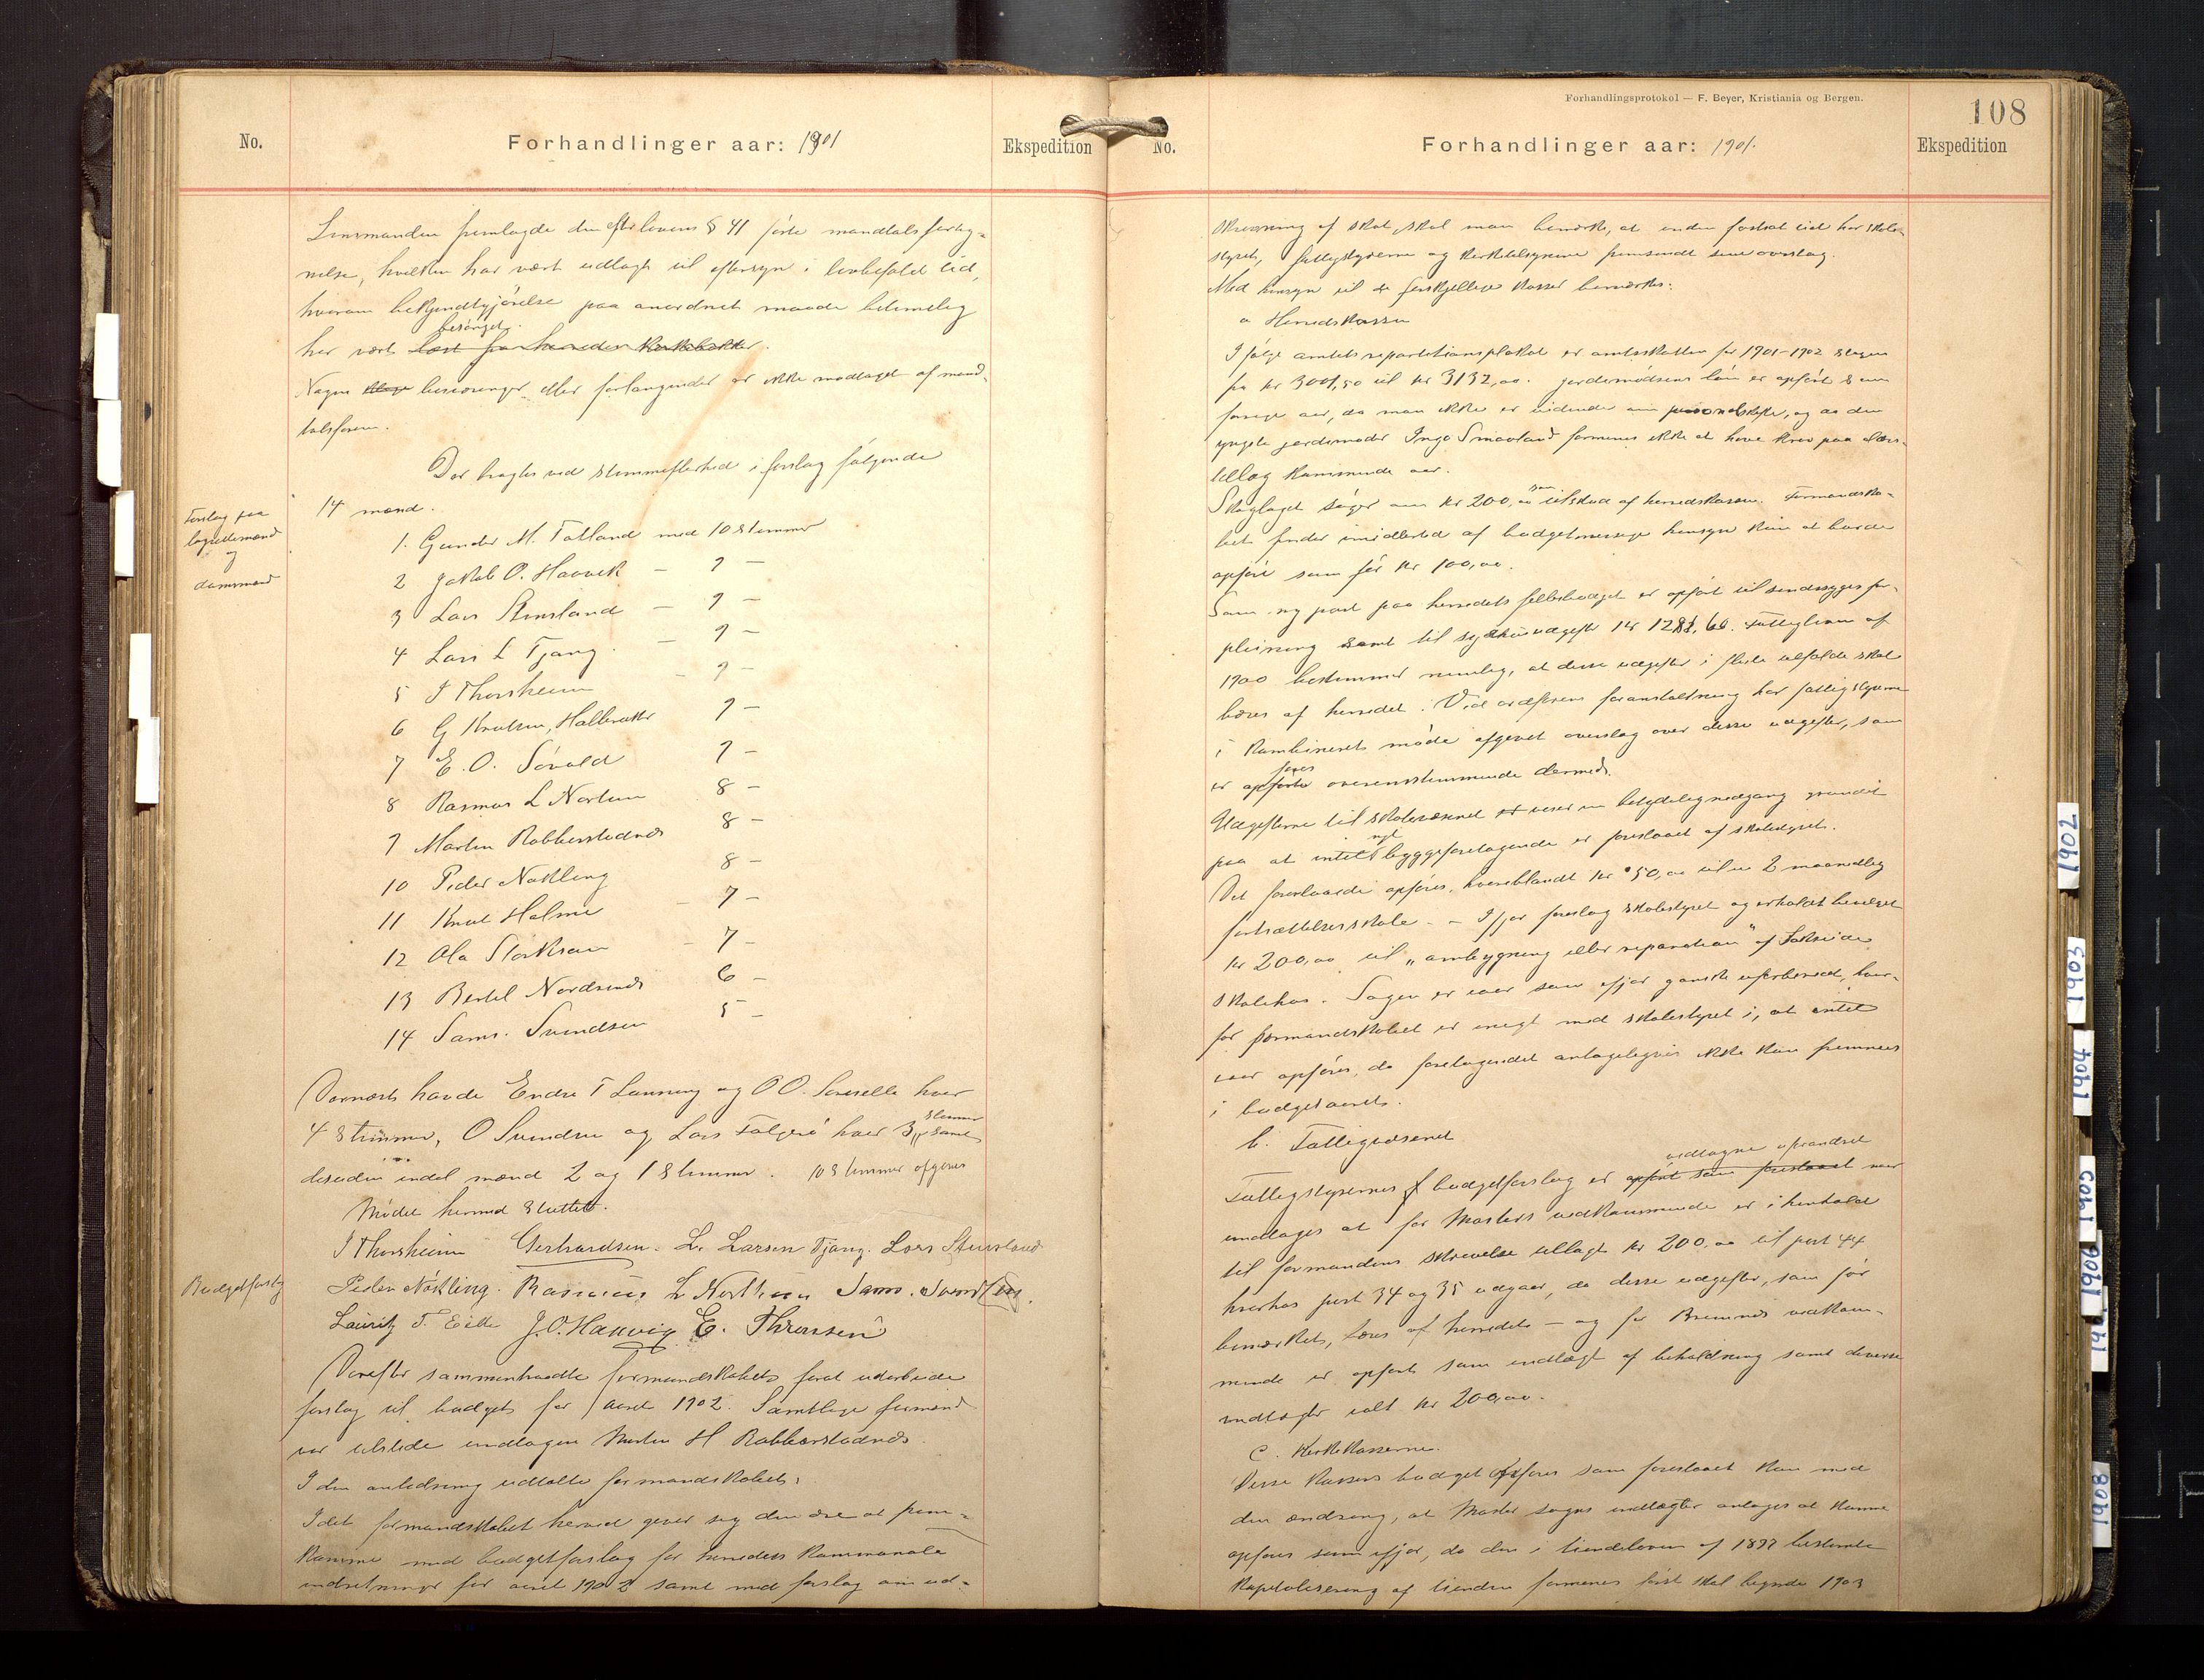 No.
Forhandlinger aar: 1901
Ekspedition
Lensmanden fremlagde den efter lovens § 41 førte mandtalsforteg-
nelse, hvilken har vært udlagt til eftersyn i lovbefalet tid,
hvorom bekjendtgjørelse paa anordnet maade betimelig
besørget.
har vært læst fra herredets kirkebakker.
Nogen klage besværinger eller forlangender er ikke modtaget af mand-
talsføreren.
Der bragtes ved stemmeflerhed i forslag følgende
14 mænd.
Forslag paa
lagrettemænd
og
domsmænd
1. Gunder M. Totland med 10 stemmer
2 Jakob O. Haavik — 9 —
3 Lars Stensland — 9 —
4 Lars L Tjong — 9 —
5 J Thorsheim — 9 —
6 G Knutsen, Hallaraker 9 —
7 E. O. Søvold 9 —
8 Rasmus L Nortun 8 —
9 Martin Robberstadnes 8 —
10 Peder Nøkling 8 —
11 Knut Holme — 7 —
12 Ola Storksen — 7 —
13 Bertel Nordsund 6 —
14 Sams. Svendsen 5 —
Dernæst havde Endre T Lønning og O O. hver
4 stemmer, O Svendsen og Lars hver 3 stemmer samt
desuden endel mænd 2 og 1 Stemmer. 10 stemmer afgaves
Mødet hermed sluttet.
J Thorsheim Gerhardsen. L. Larsen Tjong. Lars Stensland
Peder Nökling. Rasmus L Northun Sams. Svendsen.
Lauritz T. Eide J. O. Haavig E. Thronsen
Budgetforslag
Derefter sammentraadte formandskabet forat udarbeide
forslag til budget for aaret 1902. Samtlige formænd
var tilstede undtagen Martin H Robberstadnes.
I den anledning udtalte formandskabet:
Idet formandskabet herved giver sig den ære at frem-
komme med budgetforslag for herredets kommunale
indretninger for aaret 1902 samt med forslag om ud-
Forhandlingsprotokol — F. Beyer, Kristiania og Bergen.
108
No.
Forhandlinger aar: 1901.
Ekspedition
skrivning af skat, skal man bemærke, at inden fastsat tid har skole-
styret, fattigstyrerne og kirketilsynene fremsendt sine overslag.
Med hensyn til de forskjellige kasser bemærkes:
a Herredskassen
I følge amtets repartitionsplakat er amtsskatten for 1901-1902 stegen
fra kr 3001,50 til kr 3132,00. Jordemødrenes løn er opført som
forrige aar, da man ikke er vidende om personalskifte, og da den
yngste jordemoder Inga Smaaland formenes ikke at have krav paa alders-
tillæg kommende aar.
Skoglaget søger om kr 200,00 som tilskud af herredskassen. Formandska-
bet finder imidlertid af budgetmæssige hensyn kun at burde
opføre som før kr 100,00.
Som ny post paa herredets fællesbudget er opført til sindssyges for-
pleining samt til sygehusudgifter kr 1281,60. Fattigloven af
1900 bestemmer nemlig, at disse udgifter i fleste tilfælde skal
bæres af herredet. Ved ordførerens foranstaltning har fattigstyrerne
i kombineret møde afgivet overslag over disse udgifter, som
føres
er opførte overensstemmende dermed.
Udgifterne til skolevæsenet er viser en betydelig nedgang grundet
nyt
paa at intet byggeforetagende er foreslaaet af skolestyret.
Det foreslaaede opføres, hvoriblandt kr 50,00 til en 2 maanedlig
fortsættelsesskole. — Ifjor foreslog skolestyret og erholdt bevilget
kr 200,00 til „ombygning eller reparation" af
skolehus. Sagen er iaar som ifjor ganske uforberedt, hvor-
for formandskabet er enigt med skolestyret i, at intet
iaar opføres, da foretagendet antageligvis ikke kan fremmes
i budgetaaret.
b. Fattigvæsenet
vedtagne uforandret
Fattigstyrernes budgetforslag er opført som foreslaaet naar
undtages at for Mosters vedkommende er i henhold
til formandens skrivelse tillagt kr 200,00 til post 44
hvorhos post 34 og 35 udgaar, da disse udgifter, som før
bemærket, bæres af herredet — og for Bremnes vedkom-
mende er opført som indtægt af beholdning samt diverse
indtægter ialt kr 200,00.
c. Kirkekasserne.
Disse kassers budget opføres som foreslaaet kun med
den ændring, at Moster sogns indtægter antages at kunne
opføres som ifjor, da den i tiendeloven af 1897 bestemte
kapitalisering af tienden formenes først skal begynde 1903
1902
1903
1904
1905
1906
1908